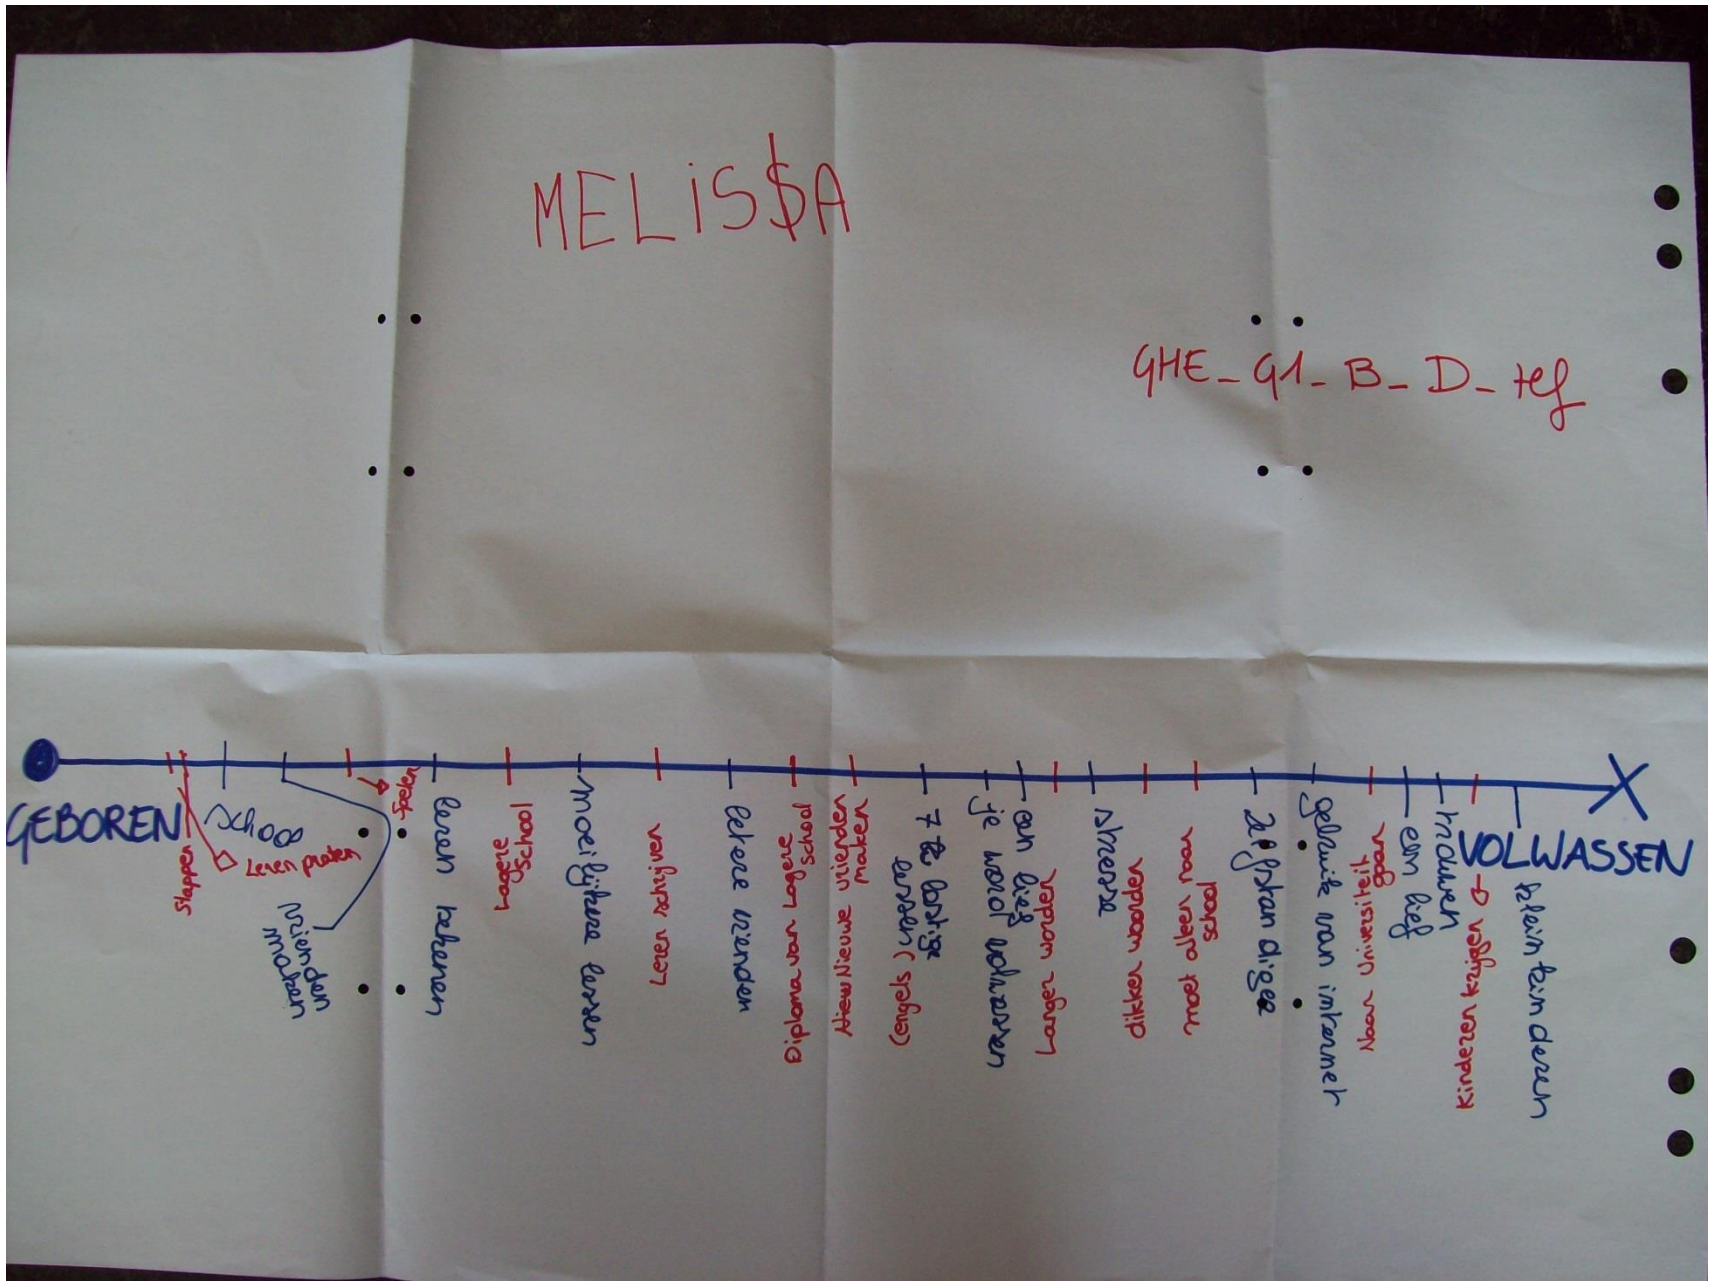 MELiS$A
GHE_G1_B_D_ref
GEBOREN
Stappen
Leren praten
School
vrienden
maken
foefen
leren rekenen
Lagere
School
moeilijkere lessen
Leren schrijven
betere vrienden
Diploma van Lagere
school
Niewe Nieuwe vrienden
maken
7 de lastige
lessen
(engels)
je word volwassen
een lief
Langer worden
stresse
dikker woorden
moet alleen naar
school
zelfstandiger
gebruik van internet
Naar Universiteit
gaan
een lief
trouwen
Kinderen krijgen
VOLWASSEN
kleinkinderen